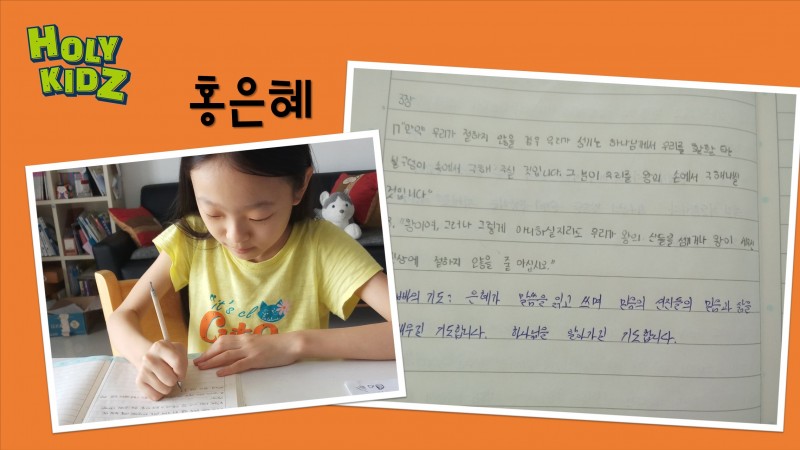 HOLY KIDZ
홍은혜
3장
17 "만약 우리가 절하지 않을 경우 우리가 섬기는 하나님께서 우리를 활활 타
불구덩이 속에서 구해내 주실 것입니다. 그 분이 우리를 왕의 손에서 구해내실
것입니다"
"왕이여, 그러나 그렇게 아니하실지라도 우리가 왕의 신들을 섬기거나 왕이 세우신
상에 절하지 않을 줄 아십시오."
아빠의 기도 : 은혜가 말씀을 읽고 쓰며 믿음의 선진들의 믿음과 삶을
배우길 기도합니다. 하나님을 닮아가길 기도합니다.
it's cl
Cute